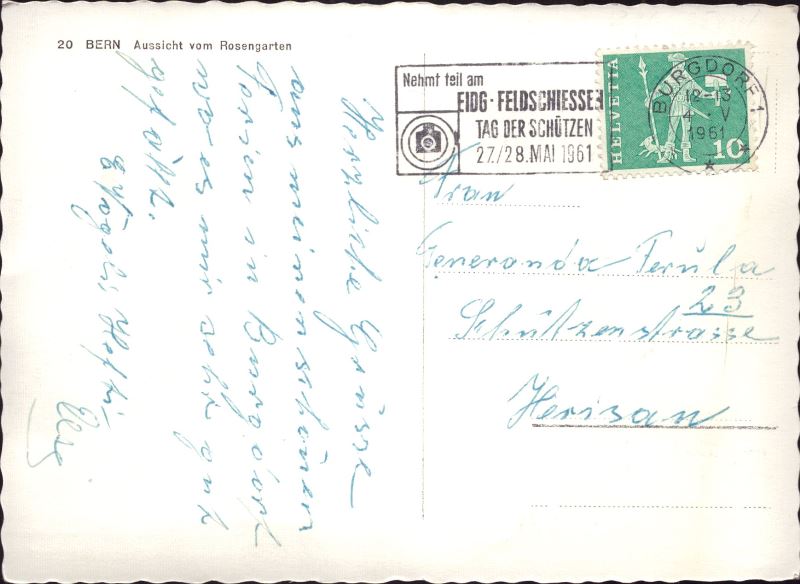 20 BERN Aussicht vom Rosengarten
Nehmt teil am
EIDG. FELDSCHIESSEN
TAG DER SCHÜTZEN
27./28. MAI 1961
HELVETIA
10
BURGDORF 1
12-13
4 V
1961
Frau
Generanda Ferula
23
Schützenstrasse
Herisau
Herzliche Grüsse
aus meinen schönen
Ferien in Burgdorf
wo es mir sehr gut
gefällt.